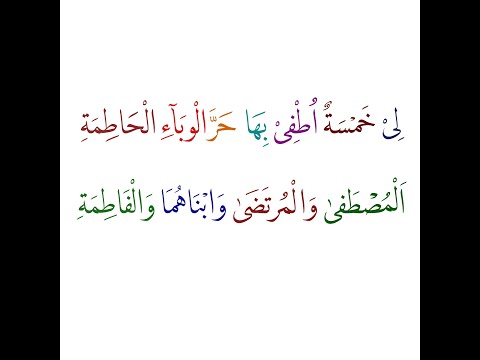 لِىْ خَمْسَةٌ اُطْفِىْ بِهَا حَرَّالْوبَآءِ الْحَاطِمَةِ
اَلْمُصْطَفىٰ وَالْمُرتَضَىٰ وَابْنَاهُمَا وَالْفَاطِمَةِ